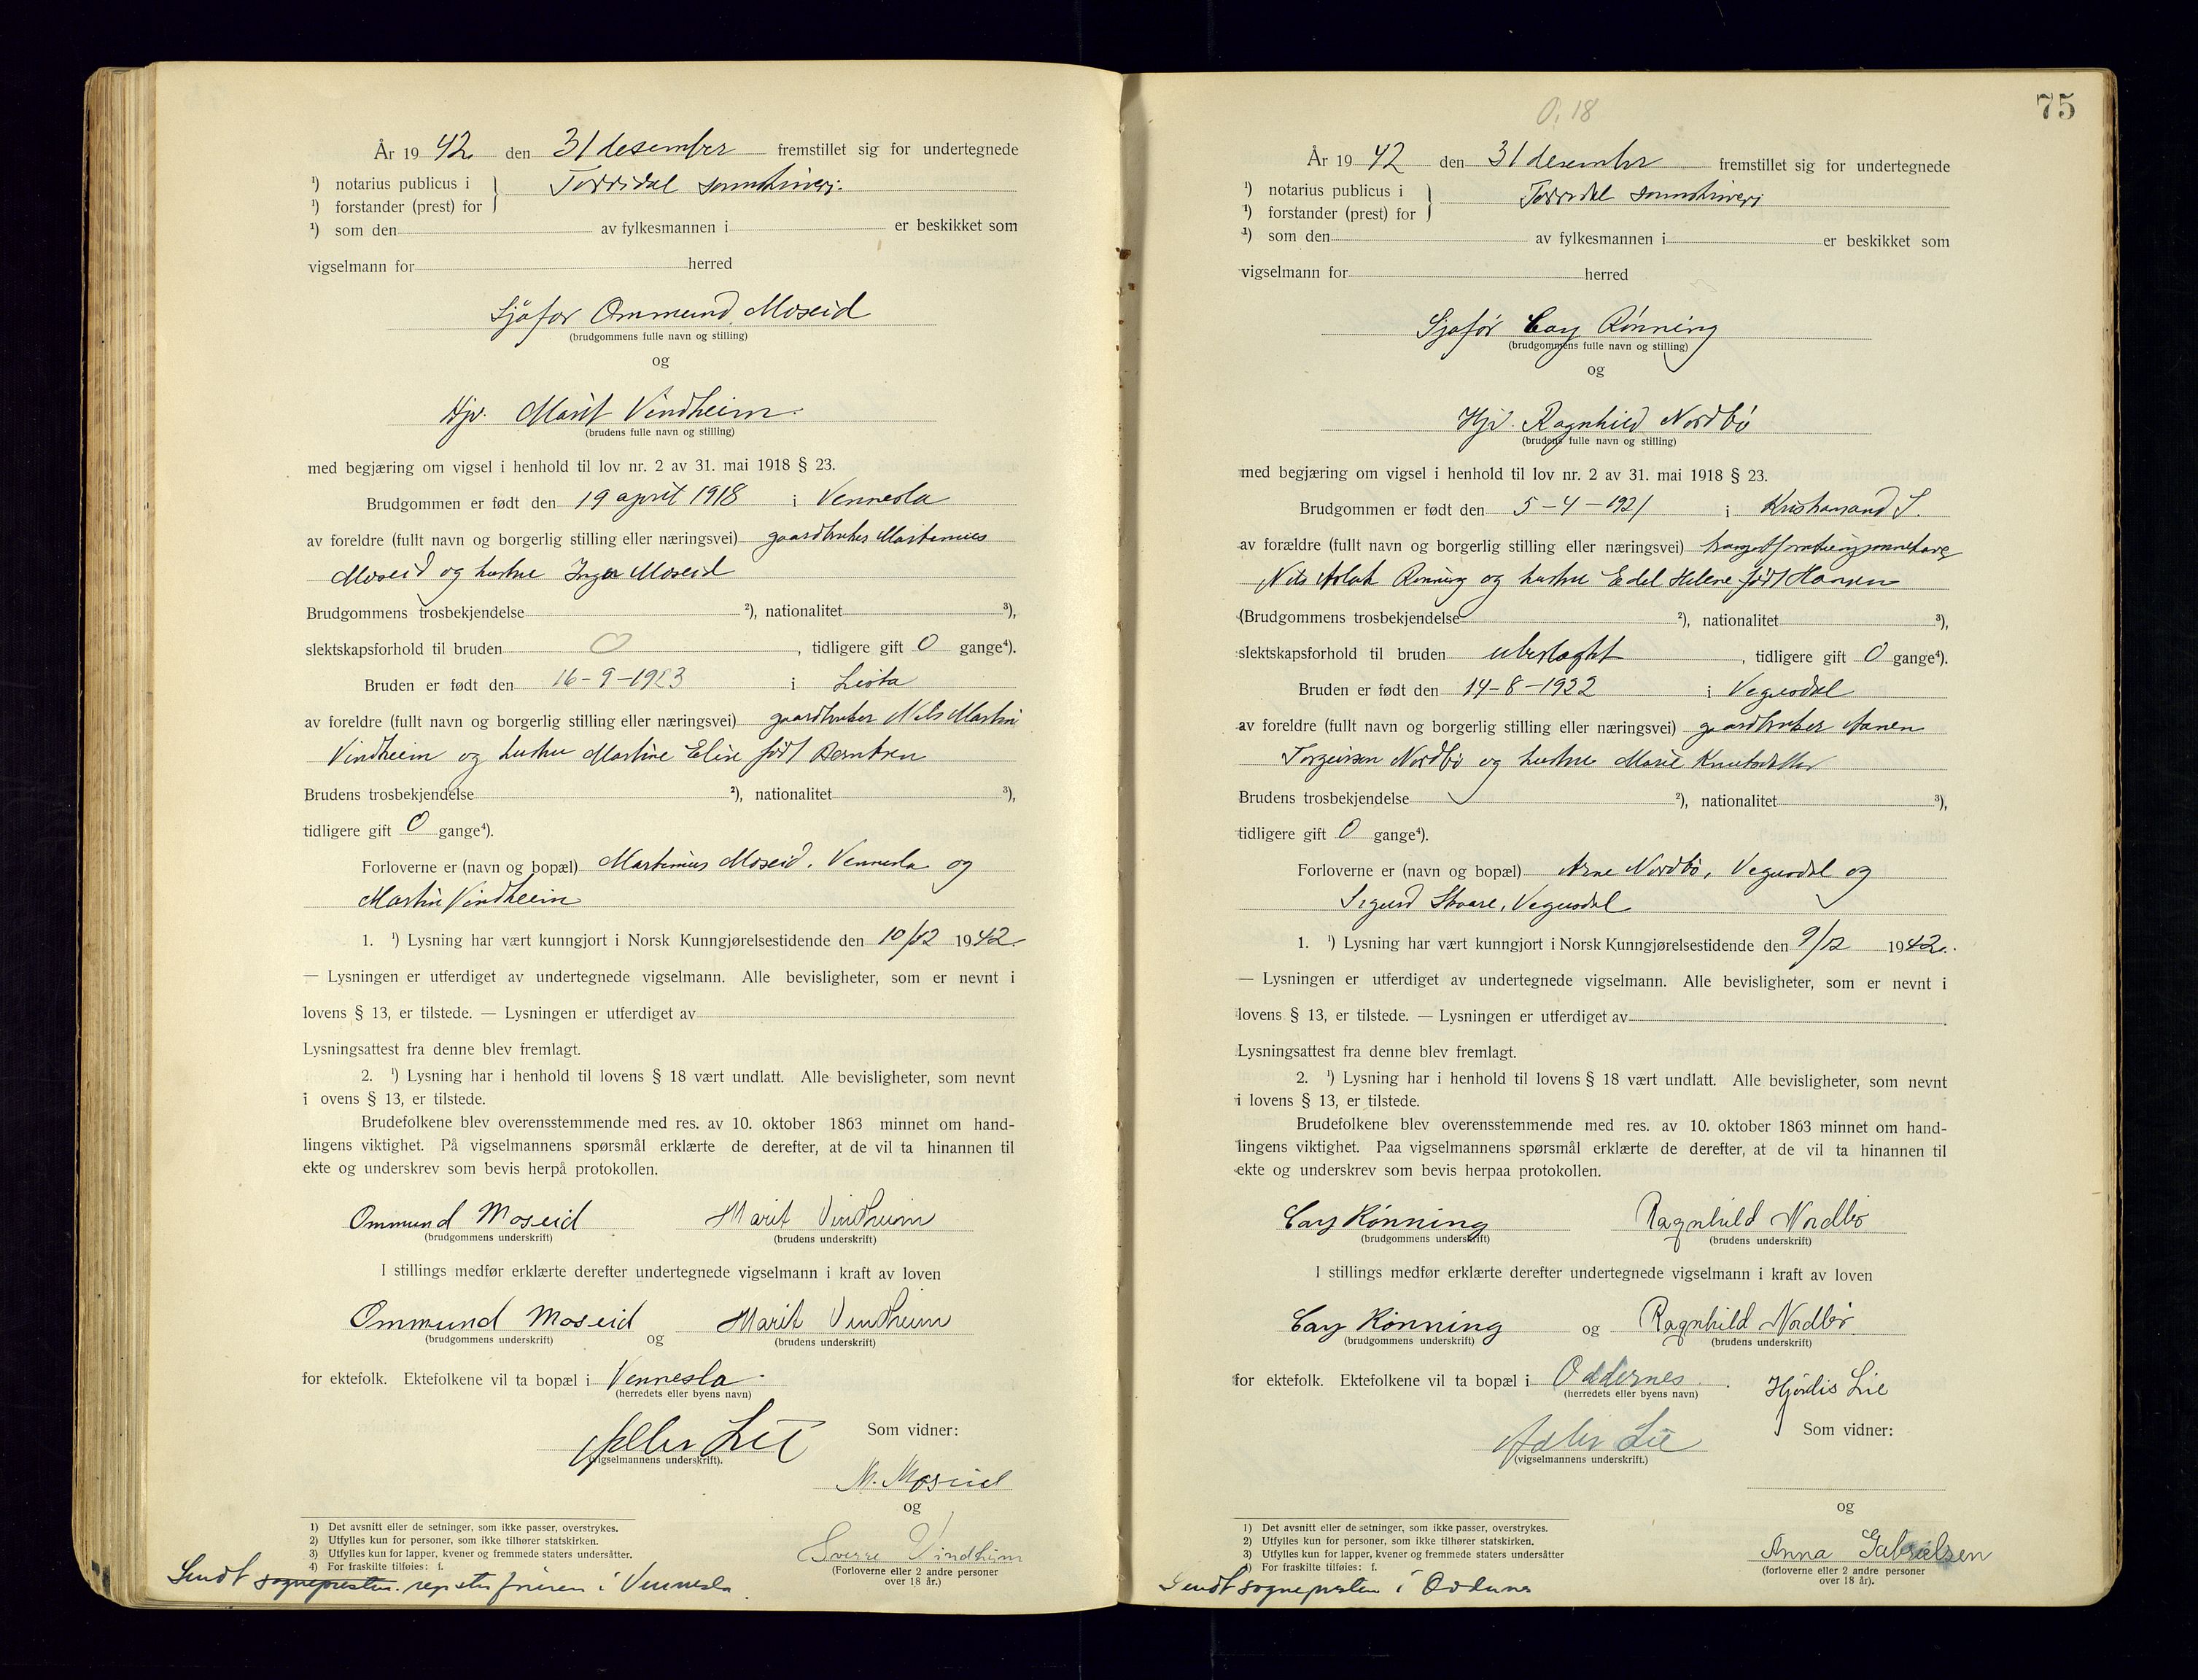 År 19 42 den 31 desember fremstillet sig for undertegnede
¹) notarius publicus i } Torridal sorenskriveri.
¹) forstander (prest) for
¹) som den av fylkesmannen i er beskikket som
vigselmann for herred
Sjåfør Ommund Moseid
(brudgommens fulle navn og stilling)
og
Hjv. Marit Vindheim.
(brudens fulle navn og stilling)
med begjæring om vigsel i henhold til lov nr. 2 av 31. mai 1918 § 23.
Brudgommen er født den 19 april 1918 i Vennesla
av foreldre (fullt navn og borgerlig stilling eller næringsvei) gaardbruker Martinius
Moseid og hustru Inga Moseid
Brudgommens trosbekjendelse ²), nationalitet ³),
slektskapsforhold til bruden 0, tidligere gift 0 gange⁴).
Bruden er født den 16-9-1923 i Lista
av foreldre (fullt navn og borgerlig stilling eller næringsvei) gaardbruker Nils Martin
Vindheim og hustru Martine Elise født Berntsen
Brudens trosbekjendelse ²), nationalitet ³),
tidligere gift 0 gange⁴).
Forloverne er (navn og bopæl) Martinius Moseid. Vennesla og
Martin Vindheim
1. ¹) Lysning har vært kunngjort i Norsk Kunngjørelsestidende den 10/12 1942.
— Lysningen er utferdiget av undertegnede vigselmann. Alle bevisligheter, som er nevnt i
lovens § 13, er tilstede. — Lysningen er utferdiget av
Lysningsattest fra denne blev fremlagt.
2. ¹) Lysning har i henhold til lovens § 18 vært undlatt. Alle bevisligheter, som nevnt
i ovens § 13, er tilstede.
Brudefolkene blev overensstemmende med res. av 10. oktober 1863 minnet om hand-
lingens viktighet. På vigselmannens spørsmål erklærte de derefter, at de vil ta hinannen til
ekte og underskrev som bevis herpå protokollen.
Ommund Moseid Marit Vindheim
(brudgommens underskrift) (brudens underskrift)
I stillings medfør erklærte derefter undertegnede vigselmann i kraft av loven
Ommund Moseid og Marit Vindheim
(brudgommens underskrift) (brudens underskrift)
for ektefolk. Ektefolkene vil ta bopæl i Vennesla.
(herredets eller byens navn)
Adler Lie
(vigselmannens underskrift).
Som vidner:
M. Moseid
og
Sverre Vindheim
(Forloverne eller 2 andre personer
over 18 år.)
1) Det avsnitt eller de setninger, som ikke passer, overstrykes.
2) Utfylles kun for personer, som ikke tilhører statskirken.
3) Utfylles kun for lapper, kvener og fremmede staters undersåtter.
4) For fraskilte tilføies: f.
Sendt sognepresten. registerføreren i Vennesla
75
O. 18
År 19 42 den 31 desember fremstillet sig for undertegnede
¹) notarius publicus i } Torridal sorenskriveri
¹) forstander (prest) for
¹) som den av fylkesmannen i er beskikket som
vigselmann for herred
Sjafør Cay Rønning
(brudgommens fulle navn og stilling)
og
Hjv. Ragnhild Nordbø
(brudens fulle navn og stilling)
med begjæring om vigsel i henhold til lov nr. 2 av 31. mai 1918 § 23.
Brudgommen er født den 5-4-1921 i Kristiansand S.
av forældre (fullt navn og borgerlig stilling eller næringsvei)
Nils Aslak Rønning og hustru Edel Helene født Hansen
(Brudgommens trosbekjendelse ²), nationalitet ³),
slektskapsforhold til bruden ubeslægtet, tidligere gift 0 gange⁴).
Bruden er født den 14-8-1922 i Vegusdal
av foreldre (fullt navn og borgerlig stilling eller næringsvei) gaardbruker Aanen
Torgeirsen Nordbø og hustru Marie Knutsdatter
Brudens trosbekjendelse ²), nationalitet ³),
tidligere gift 0 gange⁴).
Forloverne er (navn og bopæl) Arne Nordbø, Vegusdal og
Sigurd Skaare, Vegusdal
1. ¹) Lysning har vært kunngjort i Norsk Kunngjørelsestidende den 9/12 1942.
— Lysningen er utferdiget av undertegnede vigselmann. Alle bevisligheter, som er nevnt i
lovens § 13, er tilstede. — Lysningen er utferdiget av
Lysningsattest fra denne blev fremlagt.
2. ¹) Lysning har i henhold til lovens § 18 vært undlatt. Alle bevisligheter, som nevnt
i lovens § 13, er tilstede.
Brudefolkene blev overensstemmende med res. av 10. oktober 1863 minnet om hand-
lingens viktighet. Paa vigselmannens spørsmål erklærte de derefter, at de vil ta hinannen til
ekte og underskrev som bevis herpaa protokollen.
Cay Rønning Ragnhild Nordbø
(brudgommens underskrift) (brudens underskrift)
I stillings medfør erklærte derefter undertegnede vigselmann i kraft av loven
Cay Rønning og Ragnhild Nordbø
(brudgommens underskrift) (brudens underskrift)
for ektefolk. Ektefolkene vil ta bopæl i Oddernes.
(herredets eller byens navn)
Hjørdis Lie
Adler Lie
(vigselmannens underskrift.)
Som vidner:
og
Anna Gabrielsen
(forloverne eller 2 andre personer
over 18 år).
1) Det avsnitt eller de setninger, som ikke passer, overstrykes.
2) Utfylles kun for personer, som ikke tilhører statskirken.
3) Utfylles kun for lapper, kvener og fremmede staters undersåtter
4) For fraskilte tilføies: f.
Sendt sognepresten i Oddernes